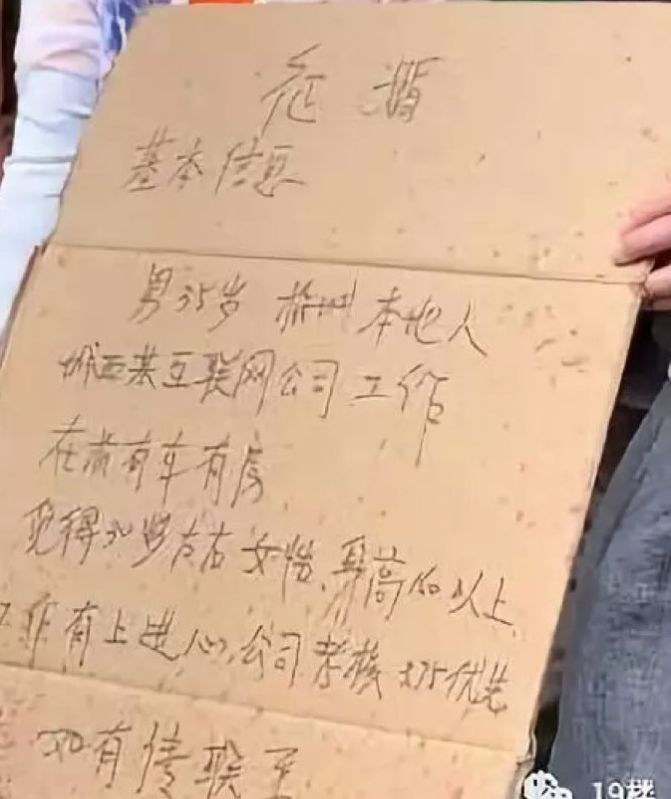 征 婚
基本信息
男35岁 杭州本地人
城西某互联网公司工作
在杭有车有房
觅得30岁左右女性,身高160以上,
工作有上进心,公司考核3.75优先
如有信联系
19楼